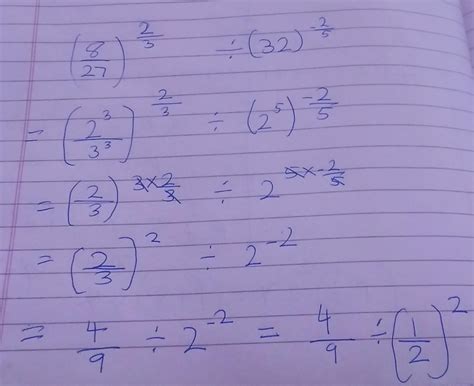 (8/27)^(2/3) ÷ (32)^(-2/5)
= (2^3/3^3)^(2/3) ÷ (2^5)^(-2/5)
= (2/3)^(3×2/3) ÷ 2^(5×-2/5)
= (2/3)^2 ÷ 2^(-2)
= 4/9 ÷ 2^(-2) = 4/9 ÷ (1/2)^2